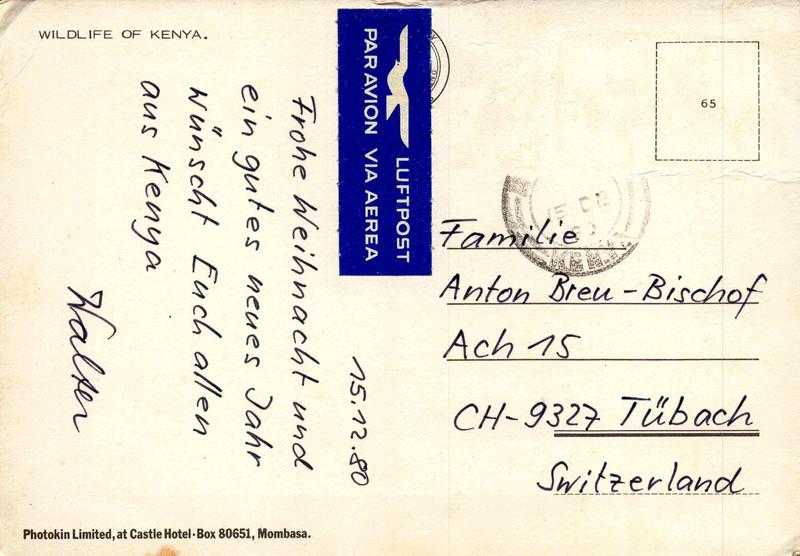 WILDLIFE OF KENYA.
15.12.80
Frohe Weihnacht und
ein gutes neues Jahr
wünscht Euch allen
aus Kenya
Walter
LUFTPOST
PAR AVION VIA AEREA
65
15 DE
80
KENYA
Familie
Anton Breu-Bischof
Ach 15
CH-9327 Tübach
Switzerland
Photokin Limited, at Castle Hotel·Box 80651, Mombasa.